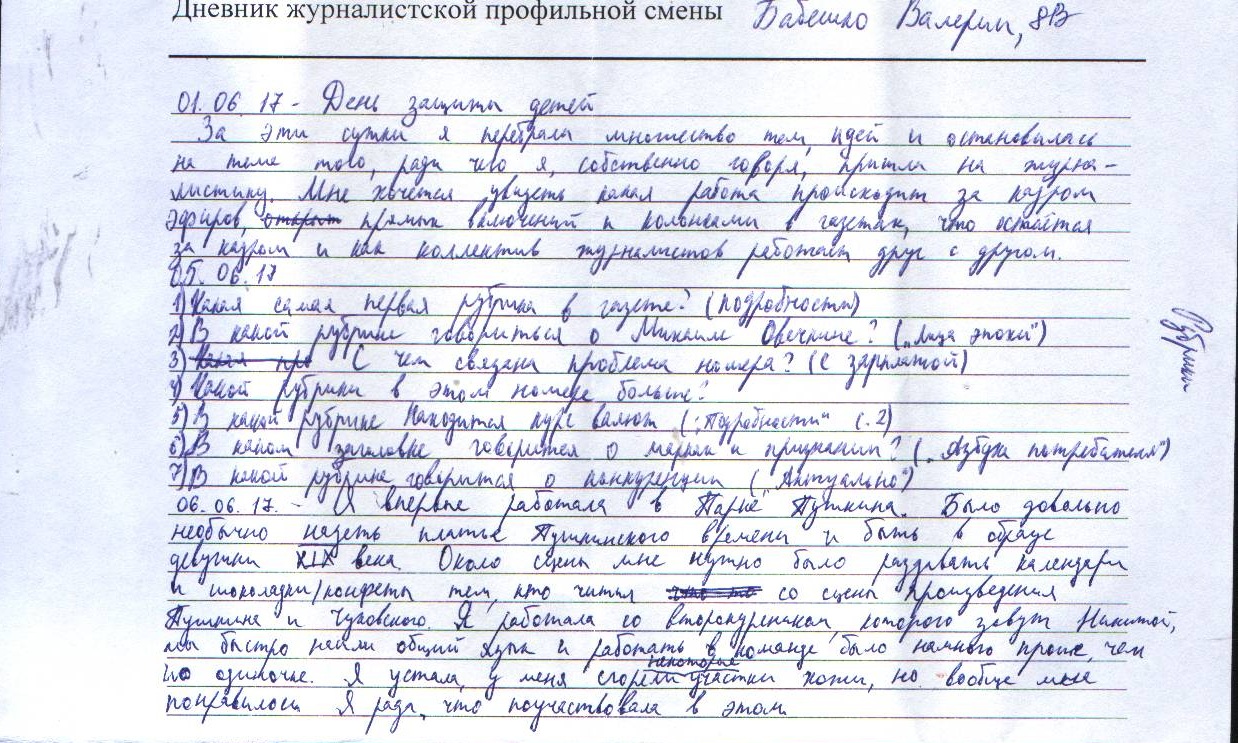 Дневник журналистской профильной смены Бабешко Валерии, 8В
01. 06. 17 - День защиты детей
За эти сутки я перебрала множество тем, идей и остановилась
на теме того, ради чего я, собственно говоря, пришла на журна-
листику. Мне хочется увидеть какая работа происходит за кадром
эфиров, прямых включений и колонками в газетах, что остаётся
за кадром и как коллектив журналистов работает друг с другом.
05. 06. 17
1) Какая самая первая рубрика в газете? (подробности)
2) В какой рубрике говориться о Михаиле Овечкине? („Лица эпохи")
3) С чем связана проблема номера? (С зарплатой)
4) Какой рубрики в этом номере больше?
5) В какой рубрике находится курс валют („Подробности" с. 2)
6) В каком заголовке говорится о марках и признании? („Азбука потребителя")
7) В какой рубрике говорится о конкуренции („Актуально")
Рубрики
06. 06. 17. - Я впервые работала в "Парке Пушкина. Было довольно
необычно надеть платье Пушкинского времени и быть в образе
девушки XIX века. Около сцены мне нужно было раздавать календари
и шоколадки/конфеты тем, кто читал со сцены произведения
Пушкина и Чуковского. Я работала со второкурсником, которого зовут Никитой,
мы быстро нашли общий язык и работать в команде было намного проще, чем
по одиночке. Я устала, у меня сгорели некоторые участки кожи, но вообще мне
понравилось. Я рада, что поучаствовала в этом.